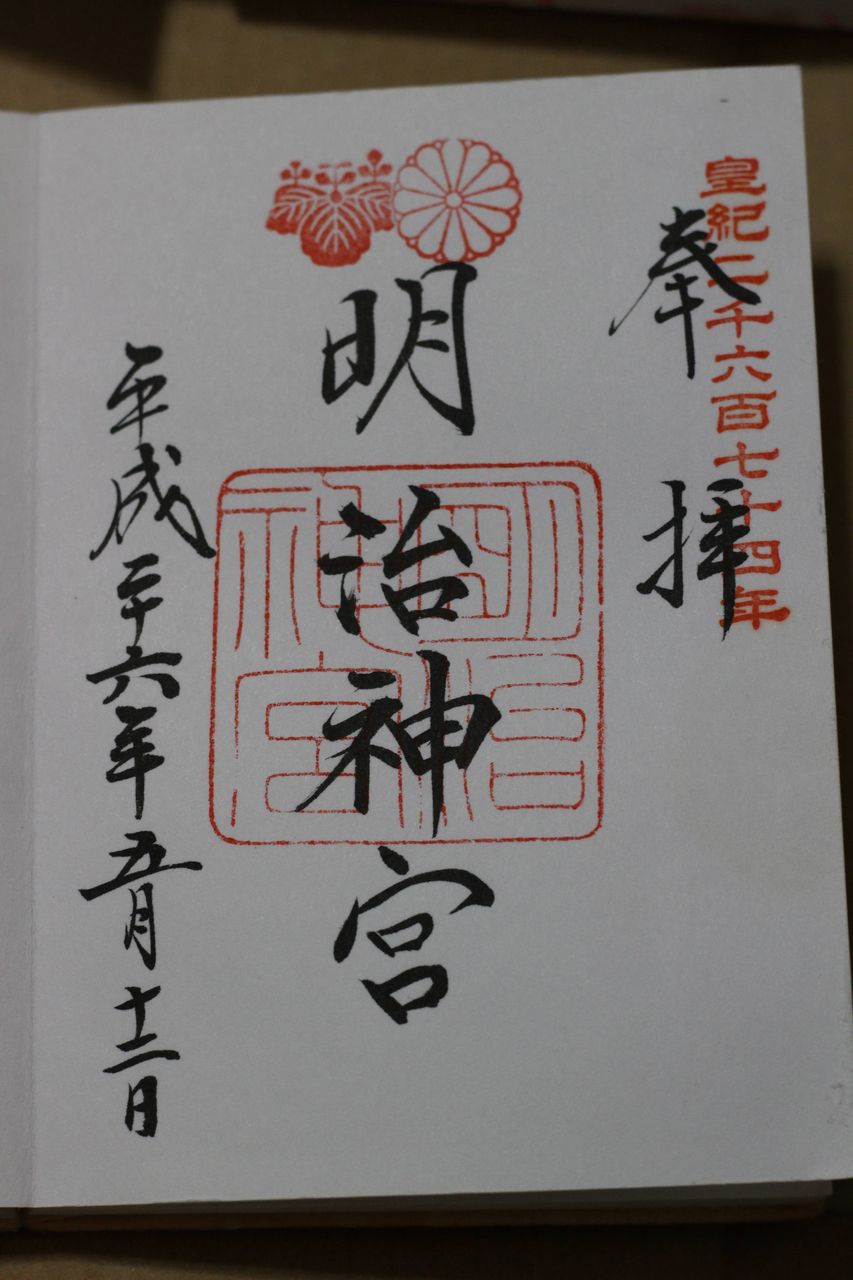 皇紀二千六百七十四年
奉拝
明治神宮
明治神宮
平成二十六年五月十二日